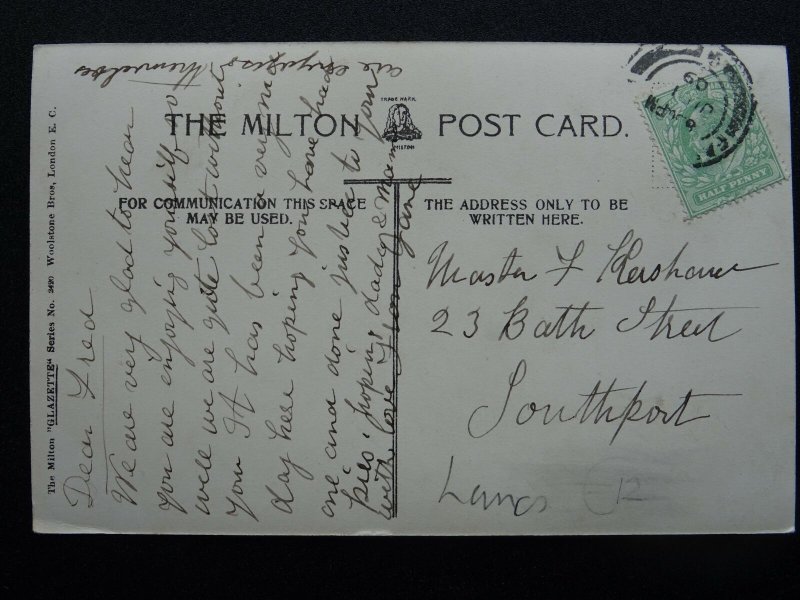 THE MILTON POST CARD.
TRADE MARK
MILTON
FOR COMMUNICATION THIS SPACE
MAY BE USED.
THE ADDRESS ONLY TO BE
WRITTEN HERE.
HALF PENNY
Master F Kershaw
23 Bath Street
Southport
Lancs
12
Dear Fred
We are very glad to hear
you are enjoying yourself so
well we are quite lost without
you It has been a very nice
day here hoping you have had
one and done justice to your
pies. hoping dada & Mama
are enjoying themselves
with love from Jane
The Milton "GLAZETTE" Series No. 2420 Woolstone Bros, London E. C.